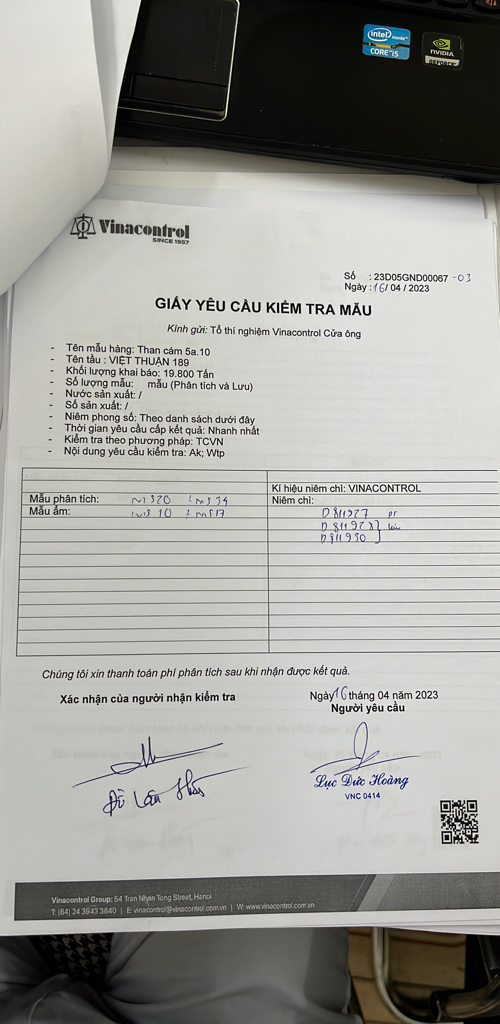 intel inside
CORE i5
NVIDIA
GEFORCE
Vinacontrol
SINCE 1957
Số : 23D05GND00067 -03
Ngày : 16/ 04 / 2023
GIẤY YÊU CẦU KIỂM TRA MẪU
Kính gửi: Tổ thí nghiệm Vinacontrol Cửa ông
- Tên mẫu hàng: Than cám 5a.10
- Tên tàu : VIỆT THUẬN 189
- Khối lượng khai báo: 19.800 Tấn
- Số lượng mẫu: mẫu (Phân tích và Lưu)
- Nước sản xuất: /
- Số sản xuất: /
- Niêm phong số: Theo danh sách dưới đây
- Thời gian yêu cầu cấp kết quả: Nhanh nhất
- Kiểm tra theo phương pháp: TCVN
- Nội dung yêu cầu kiểm tra: Ak; Wtp
Kí hiệu niêm chì: VINACONTROL
Mẫu phân tích: Niêm chì:
Mẫu ẩm: D811927 pt
D811928
D811930
Chúng tôi xin thanh toán phí phân tích sau khi nhận được kết quả.
Xác nhận của người nhận kiểm tra
Ngày 16 tháng 04 năm 2023
Người yêu cầu
Lục Đức Hoàng
VNC 0414
Vinacontrol Group: 54 Tran Nhan Tong Street, Hanoi
T: (84) 24 3943 3840 | E: vinacontrol@vinacontrol.com.vn | W: www.vinacontrol.com.vn